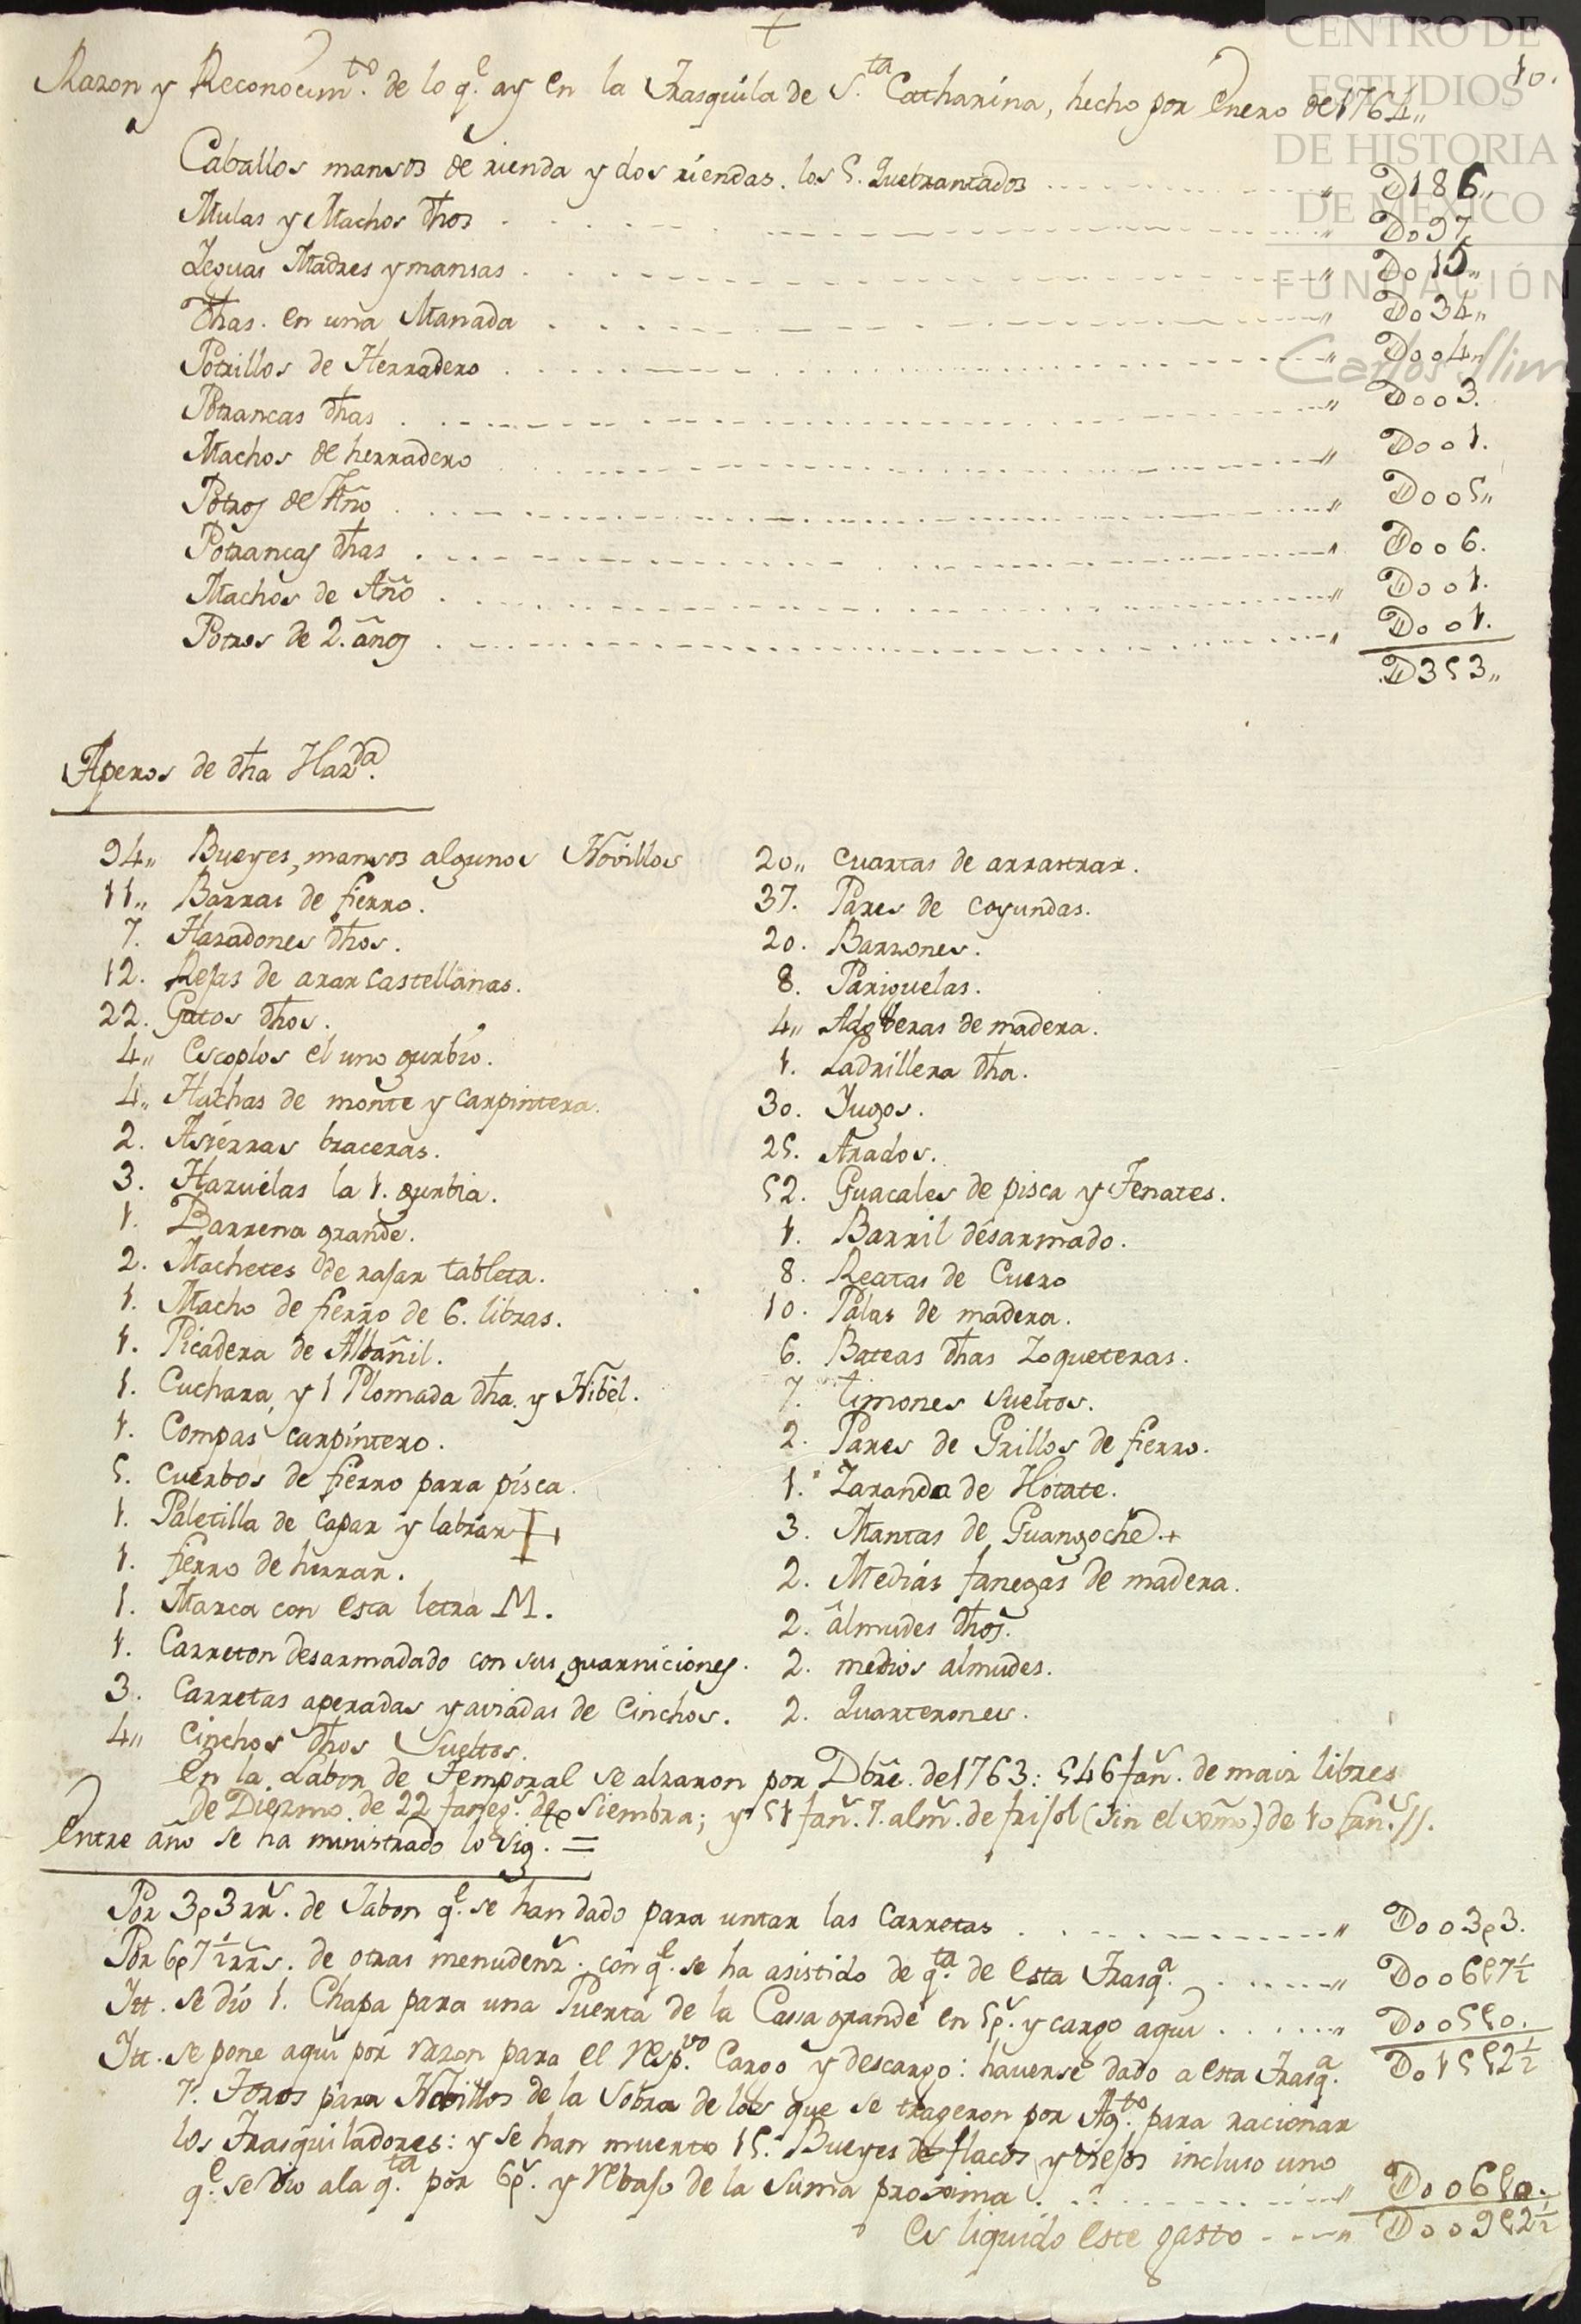 CENTRO DE
ESTUDIOS
DE HISTORIA
DE MEXICO
FUNDACIÓN
Carlos Slim
10.
+
Razon y Reconocim.to de lo q.e ay en la Trasquila de S.ta Catharina, hecho por Enero de 1764,,
Caballos mansos de rienda y dos riendas. los 5. Quebrantados ,, D186,,
Mulas y Machos dhos ,, Do97
Yeguas Madres y mansas ,, Do15,,
Dhas. en una Manada ,, Do34,,
Potrillos de Herradero ,, Doo4,,
Potrancas dhas ,, Doo3.
Machos de herradero ,, Doo1.
Potros de Año ,, Doo5,,
Potrancas dhas ,, Doo6.
Machos de Año ,, Doo1.
Potros de 2. años ,, Doo1.
D353,,
Aperos de dha Haz.da
94,, Bueyes, mansos algunos Novillos
11,, Barras de fierro.
7. Hazadones dhos.
12. Rejas de arar castellanas.
22. Gatos dhos.
4,, Escoplos el uno gurbio.
4,, Hachas de monte y carpintera.
2. Asierras braceras.
3. Hazuelas la 1. gurbia.
1. Barrena grande.
2. Machetes de rajar tableta.
1. Macho de fierro de 6. libras.
1. Picadera de Albañil.
1. Cuchara, y 1 Plomada dha. y Nibel.
1. Compas carpintero.
5. Cuerbos de fierro para pisca.
1. Paletilla de capar y labrar
1. fierro de herrar.
1. Marca con esta letra M.
1. Carreton desarmadado con sus guarniciones.
3. Carretas aperadas y aviadas de Cinchos.
4,, Cinchos dhos Sueltos.
20,, Cuartas de arrastrar.
37. Pares de coyundas.
20. Barzones.
8. Pariguelas.
4,, Adoberas de madera.
1. Ladrillera dha.
30. Yugos.
25. Arados.
52. Guacales de pisca y Tenates.
1. Barril desarmado.
8. Reatas de Cuero
10. Palas de madera.
6. Bateas dhas Zoqueteras.
7. timones sueltos.
2. Pares de Grillos de fierro.
1. Zaranda de Hotate.
3. Mantas de Guangoche.+
2. Medias fanegas de madera.
2. almudes dhos.
2. medios almudes.
2. Quarterones.
En la Labor de Temporal se alzaron por Dbre. de 1763: 546 fan.s de maiz libres
de Diezmo. de 22 faneg.s de siembra; y 51 fan.s 7. alm.s de frisol (sin el dzmo.) de 10 fan.s //.
Entre año se ha ministrado lo sig. =
Por 3p3 rr.s de Jabon q.e se han dado para untar las Carretas ,, Doo3p3.
Por 6p7½ rrs. de otras menudenz.s con q.e se ha asistido de q.ta de esta Trasq.a ,, Doo6p7½
Itt. se dio 1. Chapa para una Puerta de la Cassa grande en 5p.s y cargo aqui ,, Doo5p0.
Itt. se pone aqui por razon para el resp.vo Cargo y descargo: haverse dado a esta Trasq.a Do15p2½
7. Toros para Nobillos de la Sobra de los que se trageron por Ag.to para racionar
los Trasquiladores: y se han muerto 15. Bueyes de flacos y viejos incluso uno
q.e se dio a la q.ta por 6p.s y rebajo de la suma proxima ,, Doo6p0.
es liquido este gasto ,, Doo9p2½